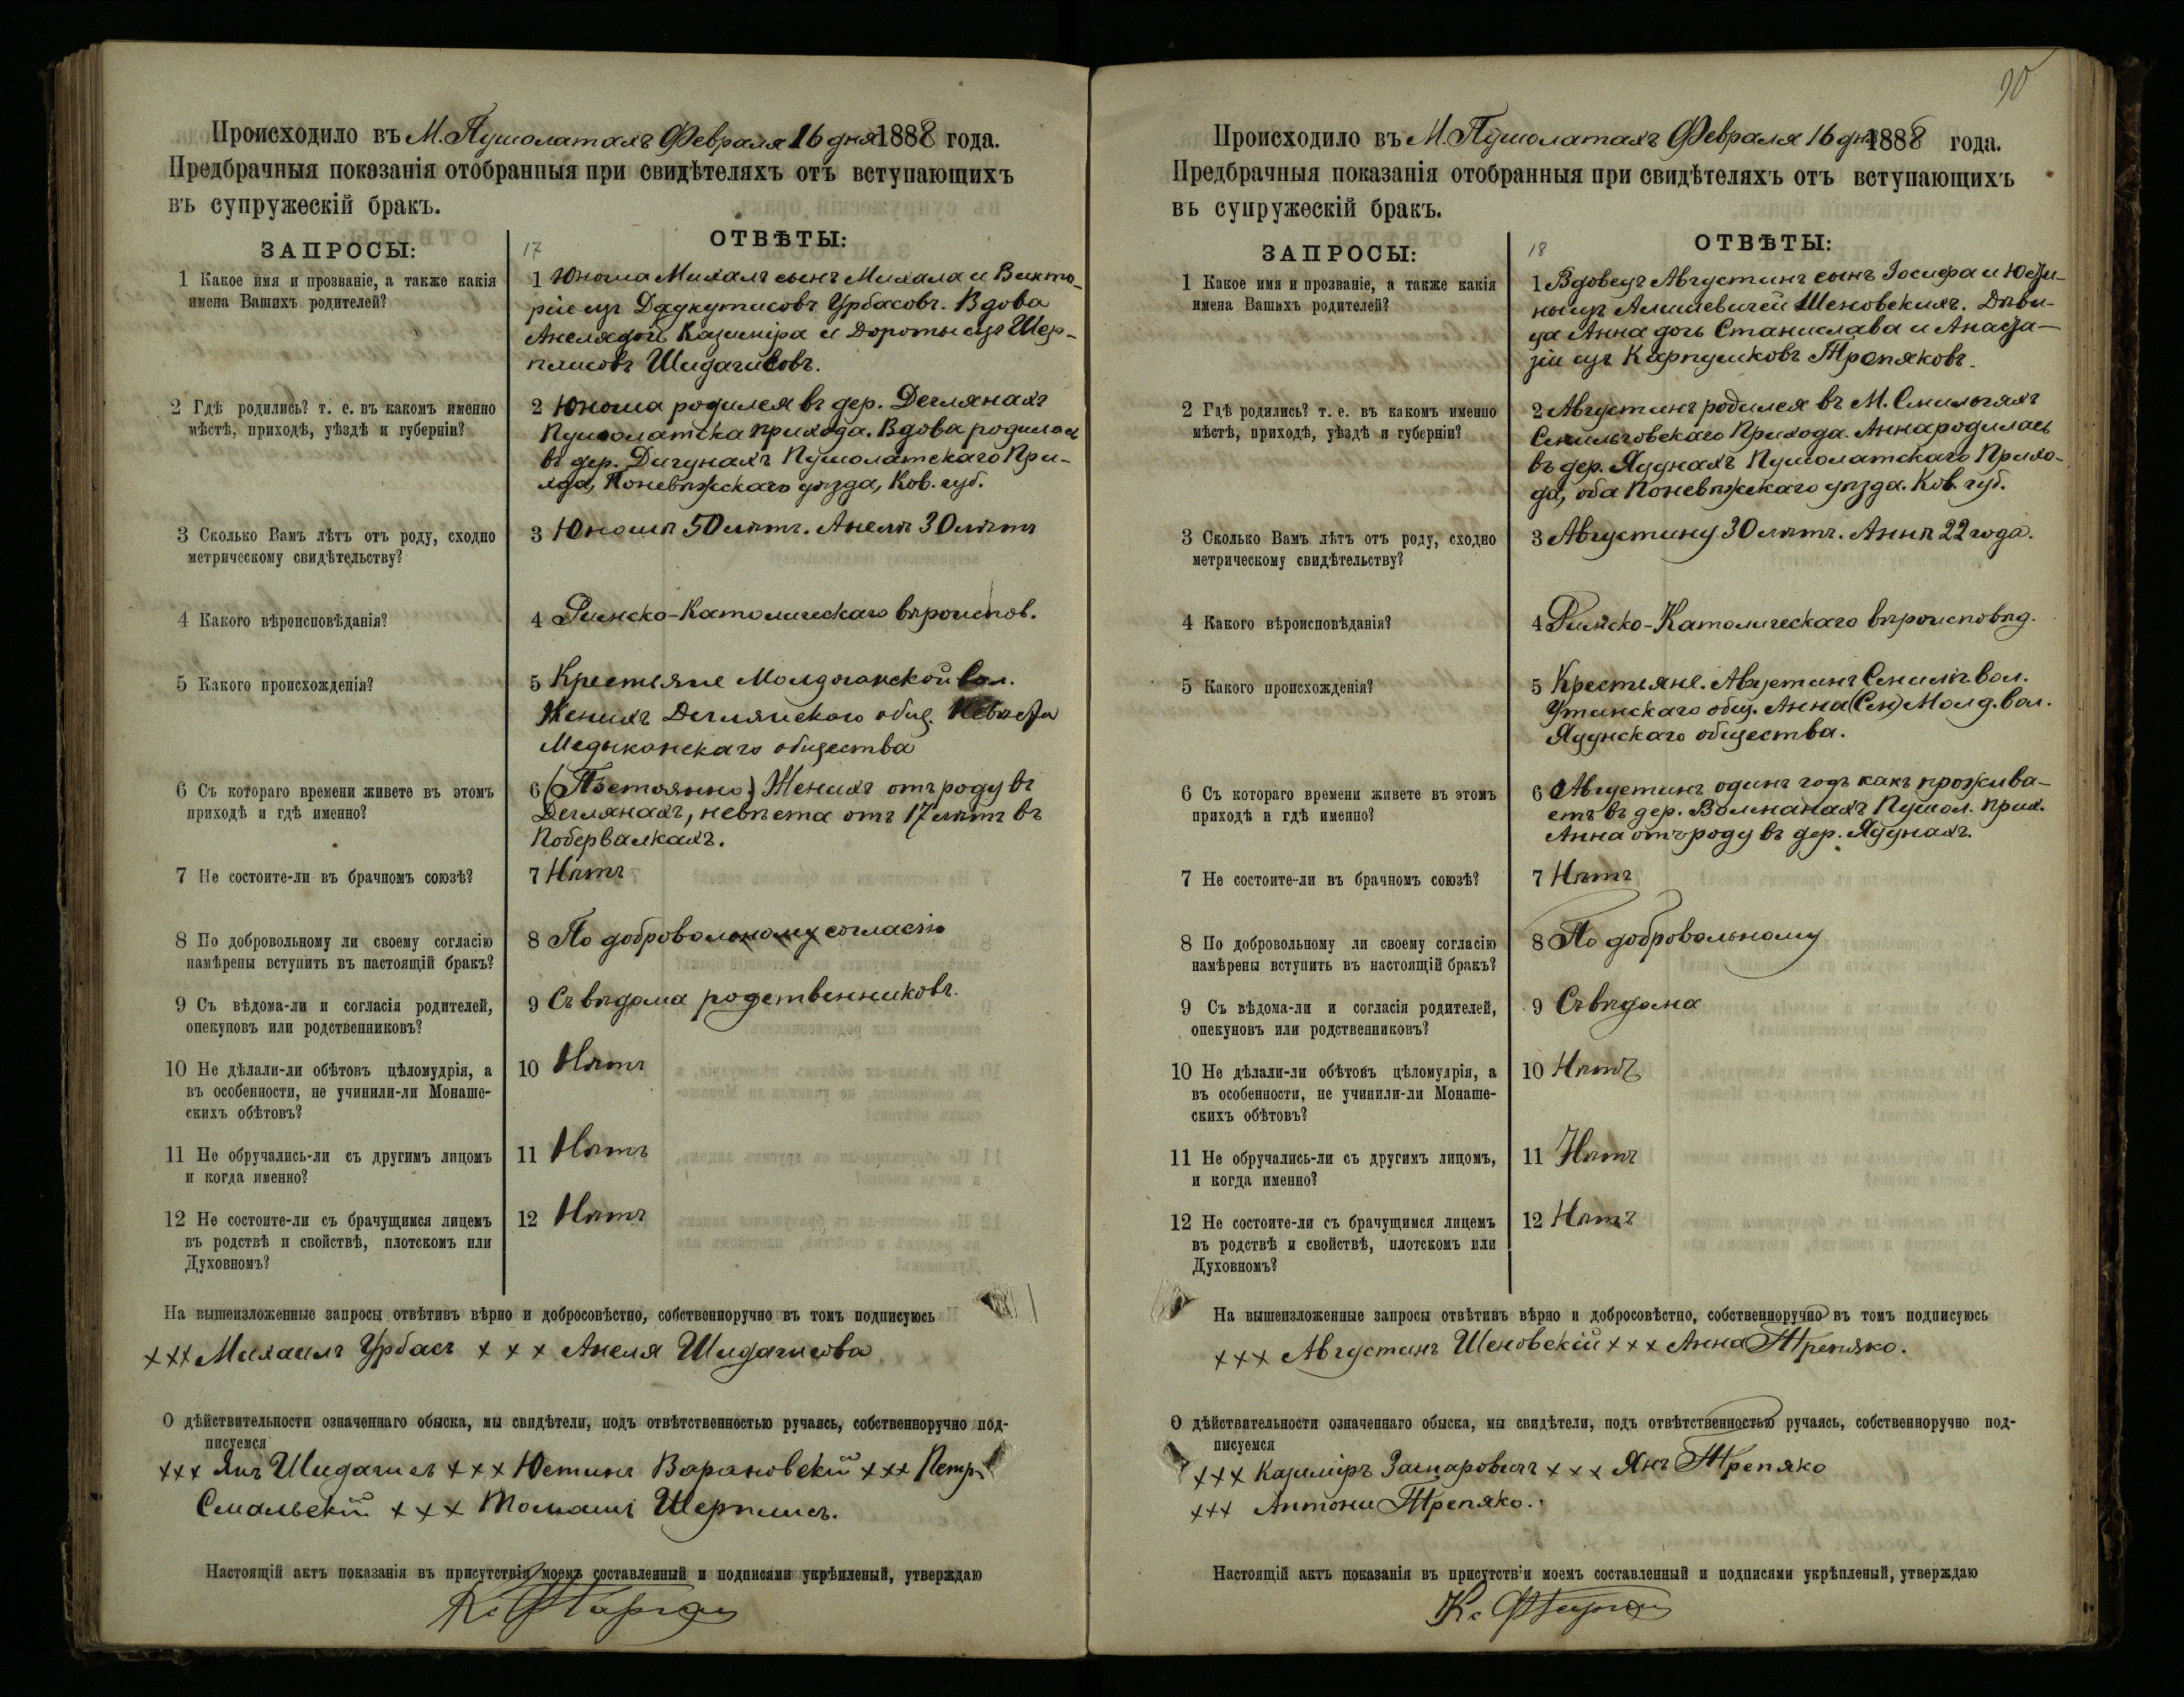 Происходило въ М. Пушолатахъ Февраля 16 дня 1888 года.
Предбрачныя показанія отобранныя при свидѣтеляхъ отъ вступающихъ
въ супружескій бракъ.
ЗАПРОСЫ:
17
ОТВѢТЫ:
1 Какое имя и прозваніе, а также какія
имена Вашихъ родителей?
1 Юноша Михалъ сынъ Михала и Викто-
ріи изъ Урбасовъ. Вдова
Анеля дочь Казиміра и Дороты изъ Шер-
писовъ Шидагисовъ.
2 Гдѣ родились? т. е. въ какомъ именно
мѣстѣ, приходѣ, уѣздѣ и губерніи?
2 Юноша родился въ дер. Дегляняхъ
Пушолатска прихода. Вдова родилась
въ дер. Дигунахъ Пушолатскаго При-
хода, Поневѣжскаго уѣзда, Ков. губ.
3 Сколько Вамъ лѣтъ отъ роду, сходно
метрическому свидѣтельству?
3 Юношѣ 50 лѣтъ. Анелѣ 30 лѣтъ
4 Какого вѣроисповѣданія?
4 Римско-Католическаго вѣроиспов.
5 Какого происхожденія?
5 Крестьяне Вол.
Женихъ Деглянскаго общ. Невѣста
Медыконскаго общества
6 Съ котораго времени живете въ этомъ
приходѣ и гдѣ именно?
6 (Постоянно) Женихъ отъ роду въ
Дегляняхъ, невѣста отъ 17 лѣтъ въ
Побервалкахъ.
7 Не состоите-ли въ брачномъ союзѣ?
7 Нѣтъ
8 По добровольному ли своему согласію
намѣрены вступить въ настоящій бракъ?
8 По добровольному согласію
9 Съ вѣдома-ли и согласія родителей,
опекуновъ или родственниковъ?
9 Съ вѣдома родственниковъ.
10 Не дѣлали-ли обѣтовъ цѣломудрія, а
въ особенности, не учинили-ли Монаше-
скихъ обѣтовъ?
10 Нѣтъ
11 Не обручались-ли съ другимъ лицомъ
и когда именно?
11 Нѣтъ
12 Не состоите-ли съ брачущимся лицемъ
въ родствѣ и свойствѣ, плотскомъ или
Духовномъ?
12 Нѣтъ
На вышеизложенные запросы отвѣтивъ вѣрно и добросовѣстно, собственноручно въ томъ подписуюсь
+++ Михаилъ Урбасъ + + + Анеля Шидагисова
О дѣйствительности означеннаго обыска, мы свидѣтели, подъ отвѣтственностью ручаясь, собственноручно под-
писуемся
+++ Янъ Шидагисъ +++ Юстинъ Барановскій +++ Петръ
Смальскій +++ Томашъ Шерписъ.
Настоящій актъ показанія въ присутствіи моемъ составленный и подписями укрѣпленый, утверждаю
90
Происходило въ М. Пушолатахъ Февраля 16 дня 1888 года.
Предбрачныя показанія отобранныя при свидѣтеляхъ отъ вступающихъ
въ супружескій бракъ.
ЗАПРОСЫ:
18
ОТВѢТЫ:
1 Какое имя и прозваніе, а также какія
имена Вашихъ родителей?
1 Вдовецъ Августинъ сынъ Іосифа и Юсти-
ны изъ Шеновскихъ. Дѣви-
ца Анна дочь Станислава и Анаста-
зіи изъ Карпушковъ Трепяковъ.
2 Гдѣ родились? т. е. въ какомъ именно
мѣстѣ, приходѣ, уѣздѣ и губерніи?
2 Августинъ родился въ М. Смильгяхъ
Смильговскаго Прихода. Анна родилась
въ дер. Яцунахъ Пушолатскаго Прихо-
да, оба Поневѣжскаго уѣзда. Ков. губ.
3 Сколько Вамъ лѣтъ отъ роду, сходно
метрическому свидѣтельству?
3 Августину 30 лѣтъ. Аннѣ 22 года.
4 Какого вѣроисповѣданія?
4 Римско-Католическаго вѣроисповѣд.
5 Какого происхожденія?
5 Крестьяне. Августинъ Смильг. вол.
Утинскаго общ. Анна (См) Молд. вол.
Яцунскаго общества.
6 Съ котораго времени живете въ этомъ
приходѣ и гдѣ именно?
6 Августинъ одинъ годъ какъ прожива-
етъ въ дер. Волмонахъ Пушол. прих.
Анна отъ роду въ дер. Яцунахъ.
7 Не состоите-ли въ брачномъ союзѣ?
7 Нѣтъ
8 По добровольному ли своему согласію
намѣрены вступить въ настоящій бракъ?
8 По добровольному
9 Съ вѣдома-ли и согласія родителей,
опекуновъ или родственниковъ?
9 Съ вѣдома
10 Не дѣлали-ли обѣтовъ цѣломудрія, а
въ особенности, не учинили-ли Монаше-
скихъ обѣтовъ?
10 Нѣтъ
11 Не обручались-ли съ другимъ лицомъ,
и когда именно?
11 Нѣтъ
12 Не состоите-ли съ брачущимся лицемъ
въ родствѣ и свойствѣ, плотскомъ или
Духовномъ?
12 Нѣтъ
На вышеизложенные запросы отвѣтивъ вѣрно и добросовѣстно, собственноручно въ томъ подписуюсь
+++ Августинъ Шеновскій +++ Анна Трепяко.
О дѣйствительности означеннаго обыска, мы свидѣтели, подъ отвѣтственностью ручаясь, собственноручно под-
писуемся
+++ Казиміръ +++ Янъ Трепяко
+++ Антони Трепяко.
Настоящій актъ показанія въ присутствіи моемъ составленный и подписями укрѣпленый, утверждаю